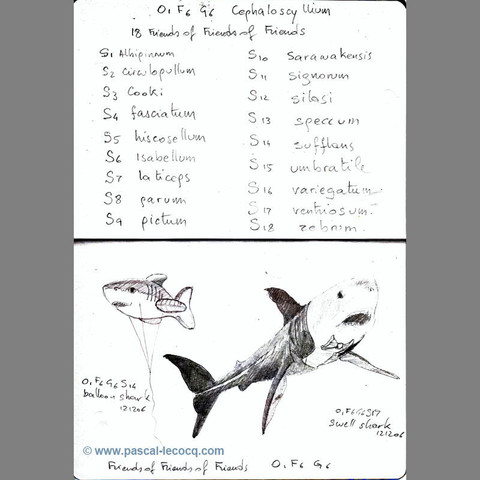 O1 F6 G6 Cephaloscyllium
18 Friends of Friends of Friends
S1 Albipinnum
S2 circulopullum
S3 Cooki
S4 fasciatum
S5 hiscosellum
S6 Isabellum
S7 laticeps
S8 parum
S9 pictum
S10 sarawakensis
S11 signorum
S12 silasi
S13 speccum
S14 sufflans
S15 umbratile
S16 variegatum
S17 ventriosum.
S18 zebrum.
O1 F6 G6 S14
balloon shark
121206
O1 F6 G6 S17
swell shark
121206
© www.pascal-lecocq.com
Friends of Friends of Friends O1 F6 G6